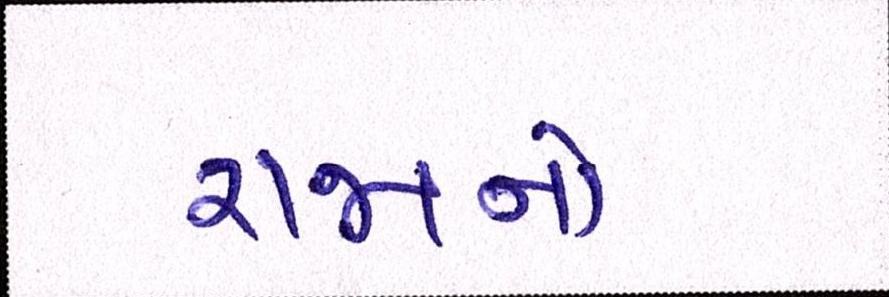 રાજાનો